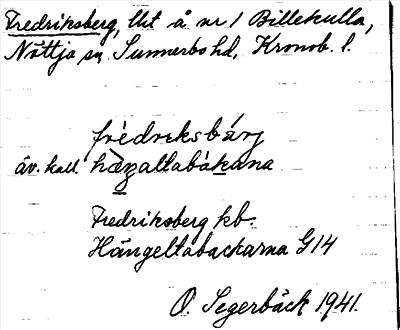 Fredriksberg, lht å nr 1 Billekulla,
Nöttja sn, Sunnerbo hd, Kronob. l.
frèdreksbárj
äv. kall. hàŋaltabákana
Fredriksberg kb
Hängeltabackarna G14
O. Segerbäck 1941.